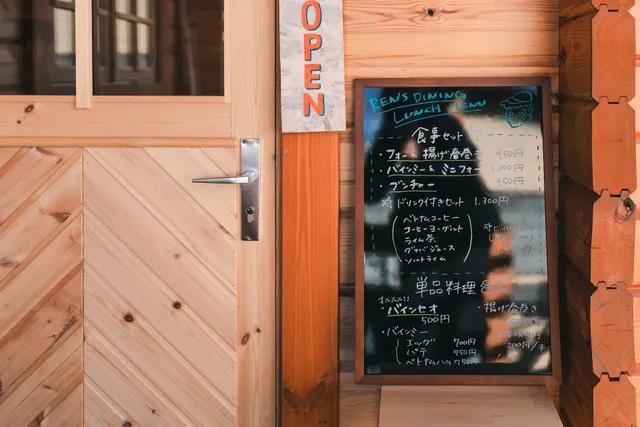 OPEN
REN'S DINING
LUNCH MENU
食事セット
・フォー & 揚げ春巻き 950円
・バインミー & ミニフォー 1,000円
・ブンチャー 950円
☆ドリンク付きセット 1,300円
ベトナムコーヒー
コーヒーヨーグルト
ライム茶
グァバジュース
ソルトライム
単品料理
オススメ!!
・バインセオ
500円
・揚げ春巻き
・バインミー
エッグ 700円
パテ 750円
ベトナムハム 750円
200円/本